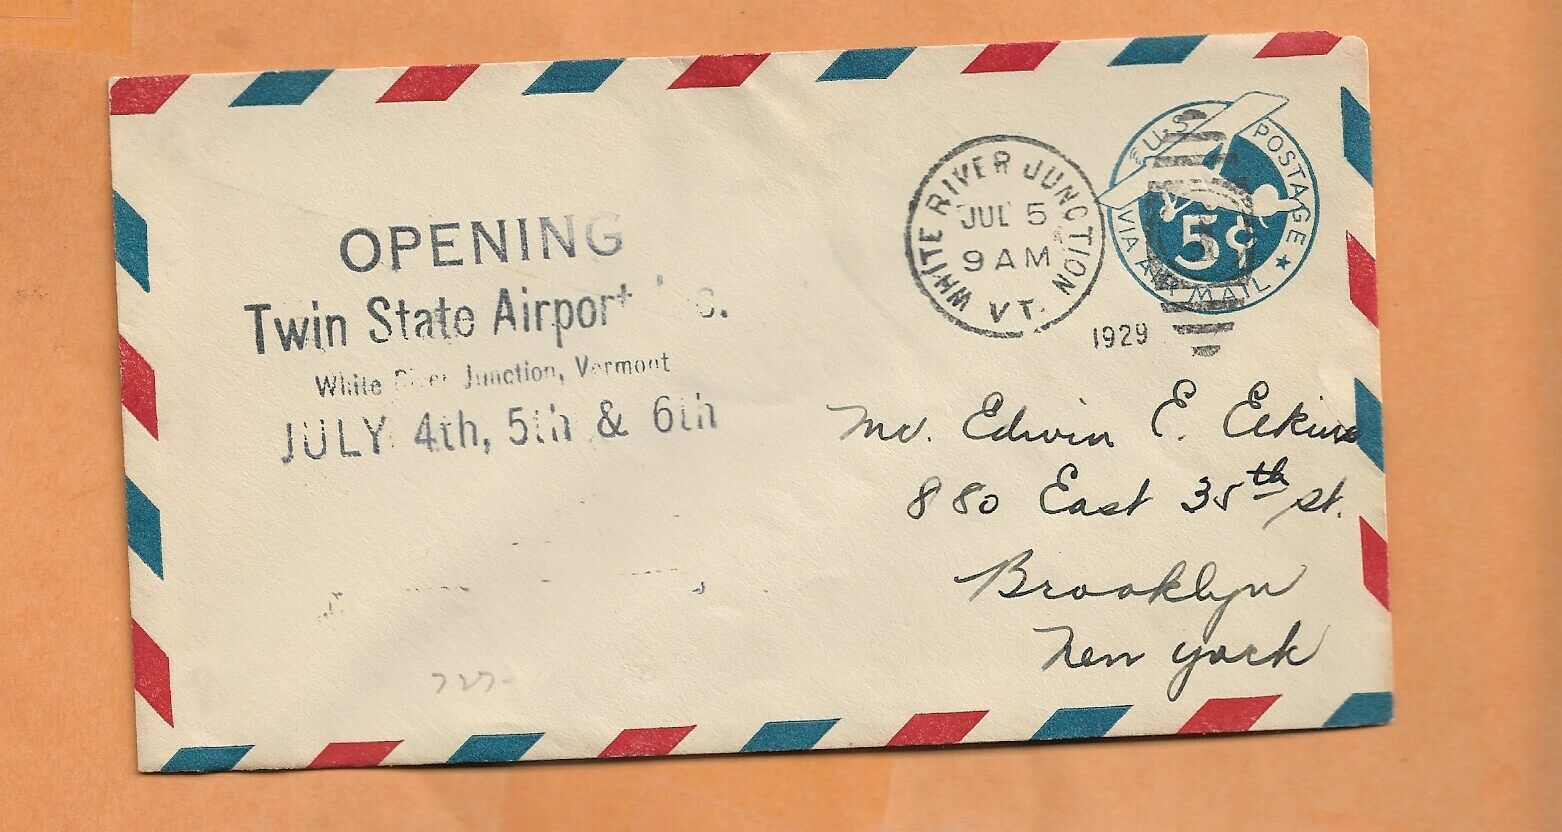 OPENING
Twin State Airport
White River Junction, Vermont
JULY 4th, 5th & 6th
WHITE RIVER JUNCTION VT.
JUL 5
9 AM
1929
U.S. POSTAGE
VIA AIR MAIL
5¢
Mr. Edwin E.
880 East 35th St.
Brooklyn
New York
727-